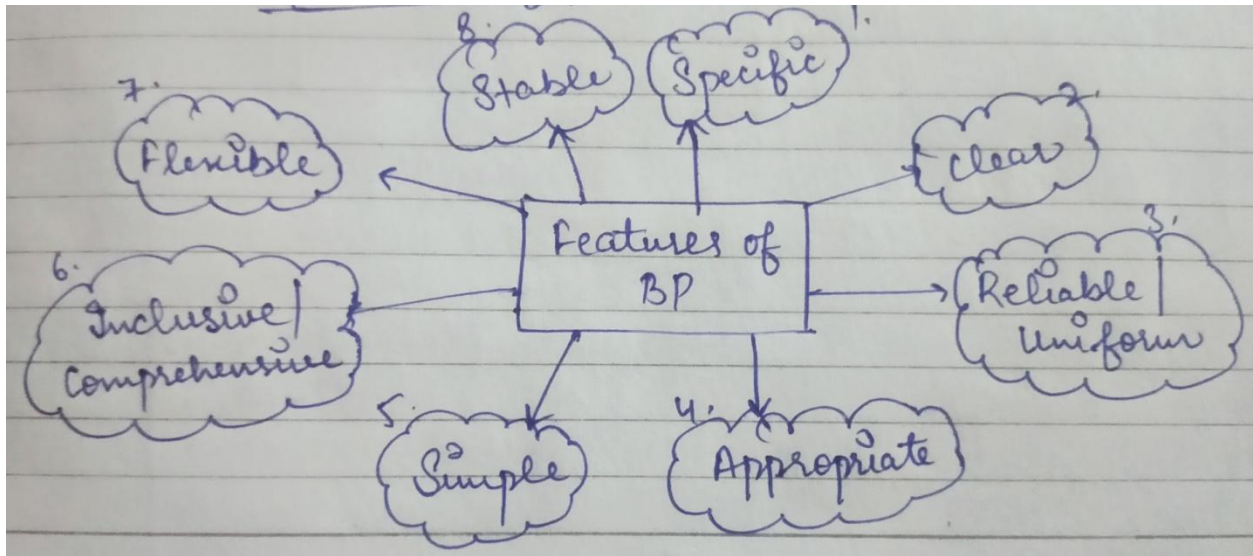 Features of
BP
1.
Specific
2.
Clear
3.
Reliable |
Uniform
4.
Appropriate
5.
Simple
6.
Inclusive |
Comprehensive
7.
Flexible
8.
Stable